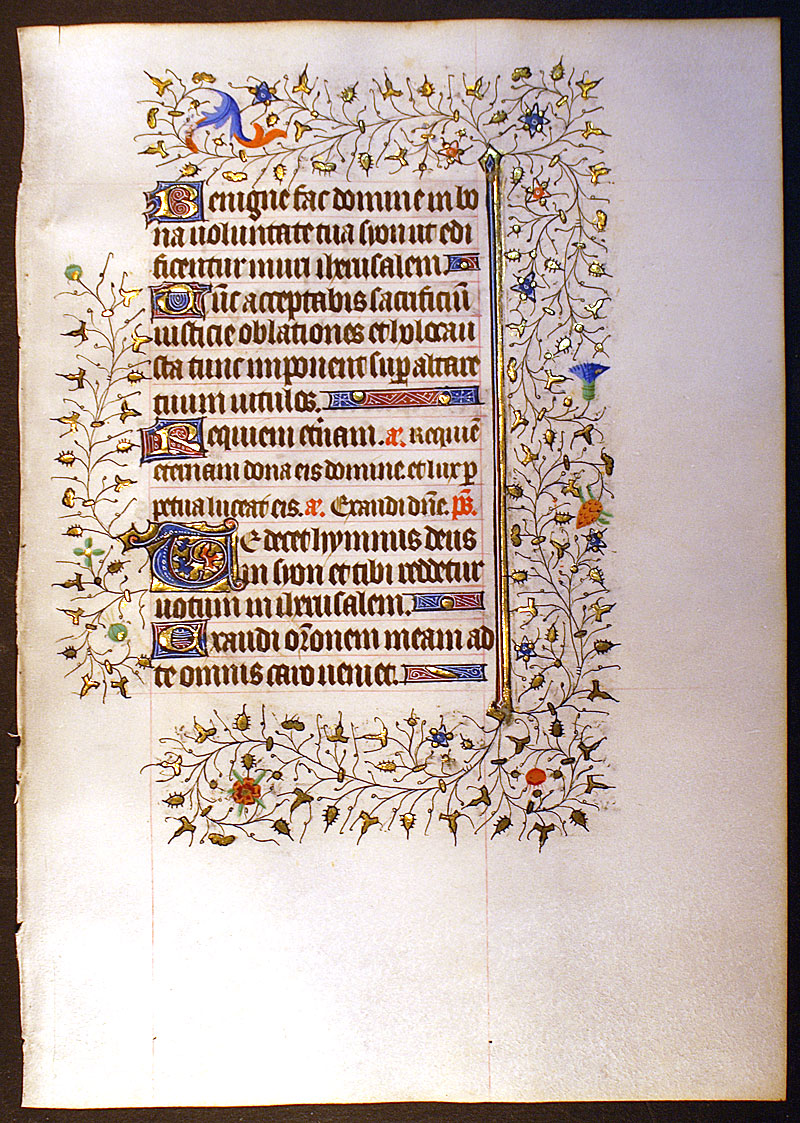 Benigne fac domine in bo
na voluntate tua syon ut edi
ficentur muri iherusalem.
Tūc acceptabis sacrificiū
iusticie oblationes et holocau
sta tunc imponent sup altare
tuum vitulos.
Requiem et̄nam. a. Requiē
eternam dona eis domine. et lux p
petua luceat eis. a. Exaudi dn̄e. ps̄.
Te decet hymnus deus
in syon et tibi reddetur
votum in iherusalem.
Exaudi or̄onem meam ad
te omnis caro veniet.